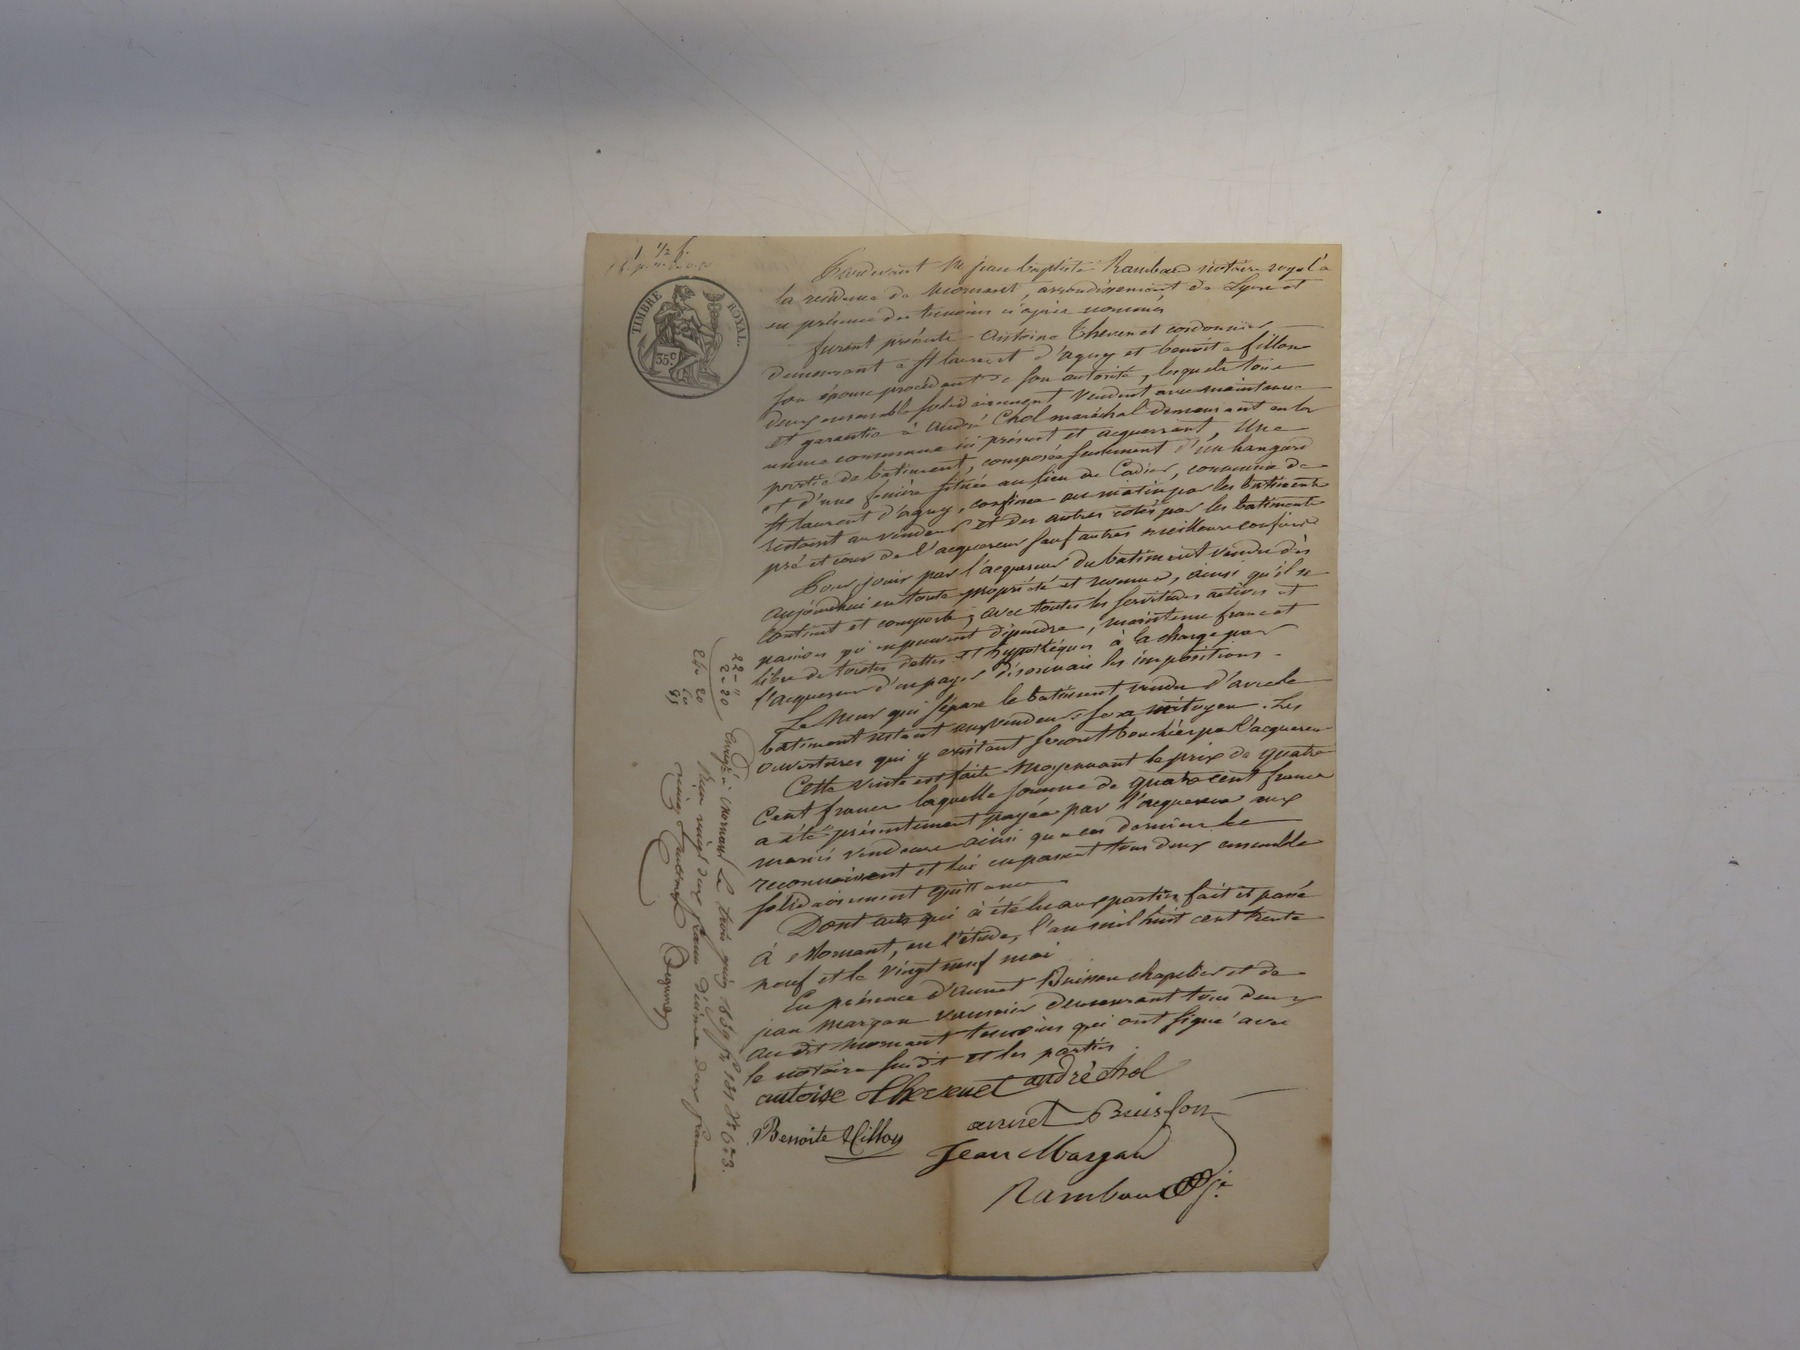 1 1/2 f.
TIMBRE ROYAL.
35c
Pardevant Me jean baptiste Rambaud notaire royal à
la residence de Mornant, arrondissement de Lyon et
en présence des temoins ci après nommés
furent présents Antoine Thevenet cordonnier
demeurant a St laurent d'agny et benoite fillon
son épouse procédant de son autorité, lesquels tous
deux ensemble solidairement vendent avec maintenue
et garantie à André Chol maréchal demeurant en la
même commune ici présent et acquerrant, Une
partie de batiment, composée seulement d'un hangard
et d'une feniere située au lieu du Cadier, commune de
St laurent d'agny, confinée au matin par les batiments
restant au vendeur et des autres cotés par les batiments
pré et cour de l'acquereur sauf autres meilleurs confins
Pour jouir par l'acquereur du batiment vendu dès
aujourdhui en toute propriété et revenus, ainsi qu'il se
contient et comporte, avec toutes les servitudes actives et
passives qui en peuvent dépendre, maintenu franc et
libre de toutes dettes et hypothèques à la charge par
l'acquereur d'en payer désormais les impositions.
Le Mur qui sépare le batiment vendu d'avec le
batiment restant aux vendeurs sera mitoyen. Les
ouvertures qui y existent seront bouchées par l'acquereur
Cette vente est faite moyennant le prix de quatre
Cent francs laquelle somme de quatre cent francs
a été présentement payée par l'acquereur aux
mariés vendeurs ainsi que ces derniers le
reconnaissent et lui en passent tous deux ensemble
solidairement quittance
Dont acte qui à été lu aux parties fait et passé
à Mornant, en l'étude, l'an mil huit cent trente
neuf et le vingt neuf mai
En présence d'annet Buisson chapelier et de
jean Margan demeurant tous deux
au dit Mornant temoins qui ont signé avec
le notaire susdit et les parties
antoise Thevenet andré chol
Benoite fillon annet Buisson
Jean Margan
Rambaud
22 "
2 20
24 20
Enregé à Mornant le trois juin 1839 fo 131
Reçu vingt deux francs décime deux francs
vingt centimes